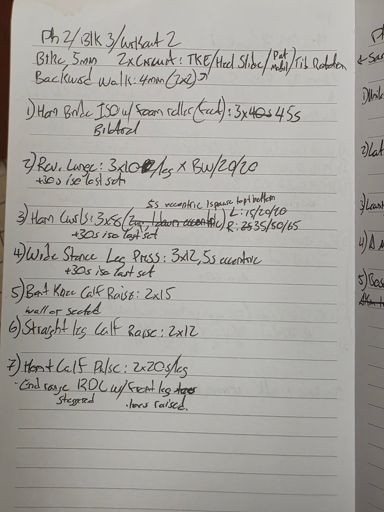 Ph 2/Blk 3/Workout 2
Bike, 5min 2x Circuit: TKE/Heel Slide/Pat Mobil/Tib Rotation
Backward Walk: 4min (2x2)
1) Ham Bridge ISO w/ foam roller (feet): 3x 45s
Bilateral
2) Rev. Lunge: 3x10/leg x BW/20/20
+30s iso last set
5s eccentric 1s pause top/bottom
3) Ham Curls: 3x8s L: 15/20/20
+30s iso last set R: 35/50/65
4) Wide Stance Leg Press: 3x12, 5s eccentric
+30s iso last set
5) Bent Knee Calf Raise: 2x15
wall or seated
6) Straight leg Calf Raise: 2x12
7) Calf Pulse: 2x20s/leg
- End range RDL w/ front leg
staggered toes raised.
2) Lat
3) 
4) 
5)